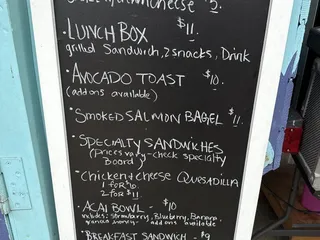 cheese $2.
• LUNCH BOX $11.
grilled Sandwich, 2 snacks, Drink
• AVOCADO TOAST $10.
(add ons available)
• SMOKED SALMON BAGEL $11.
• SPECIALTY SANDWICHES
(prices vary-check specialty
Board)
• Chicken + cheese QUESADILLA
1 for $10
2 for $11.
• ACAI BOWL - $10
includes: Strawberry, Blueberry, Banana,
granola honey - add ons available
• BREAKFAST SANDWICH - $9